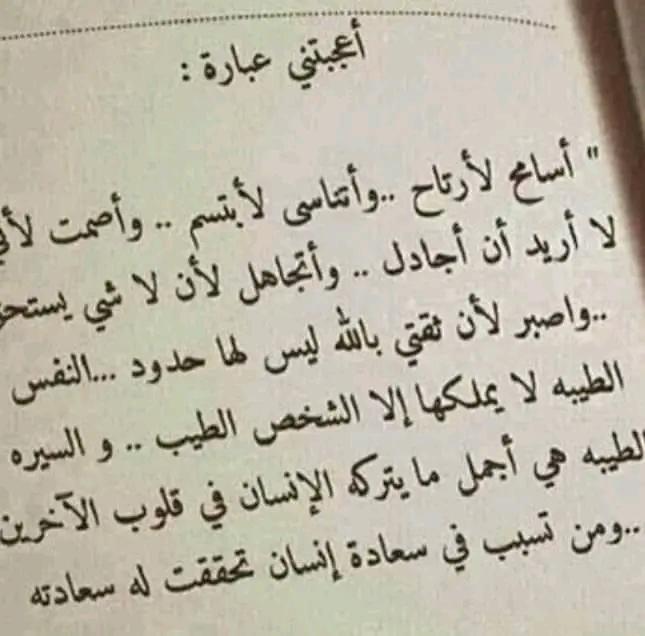 أعجبتني عبارة :
" أسامح لأرتاح ..وأتناسى لأبتسم .. وأصمت
لا أريد أن أجادل .. وأتجاهل لأن لا شي
..واصبر لأن ثقتي بالله ليس لها حدود ...النفس
الطيبه لا يملكها إلا الشخص الطيب .. و السيره
لطيبه هي أجمل ما يتركه الإنسان في قلوب الآخرين
..ومن تسبب في سعادة إنسان تحققت له سعادته